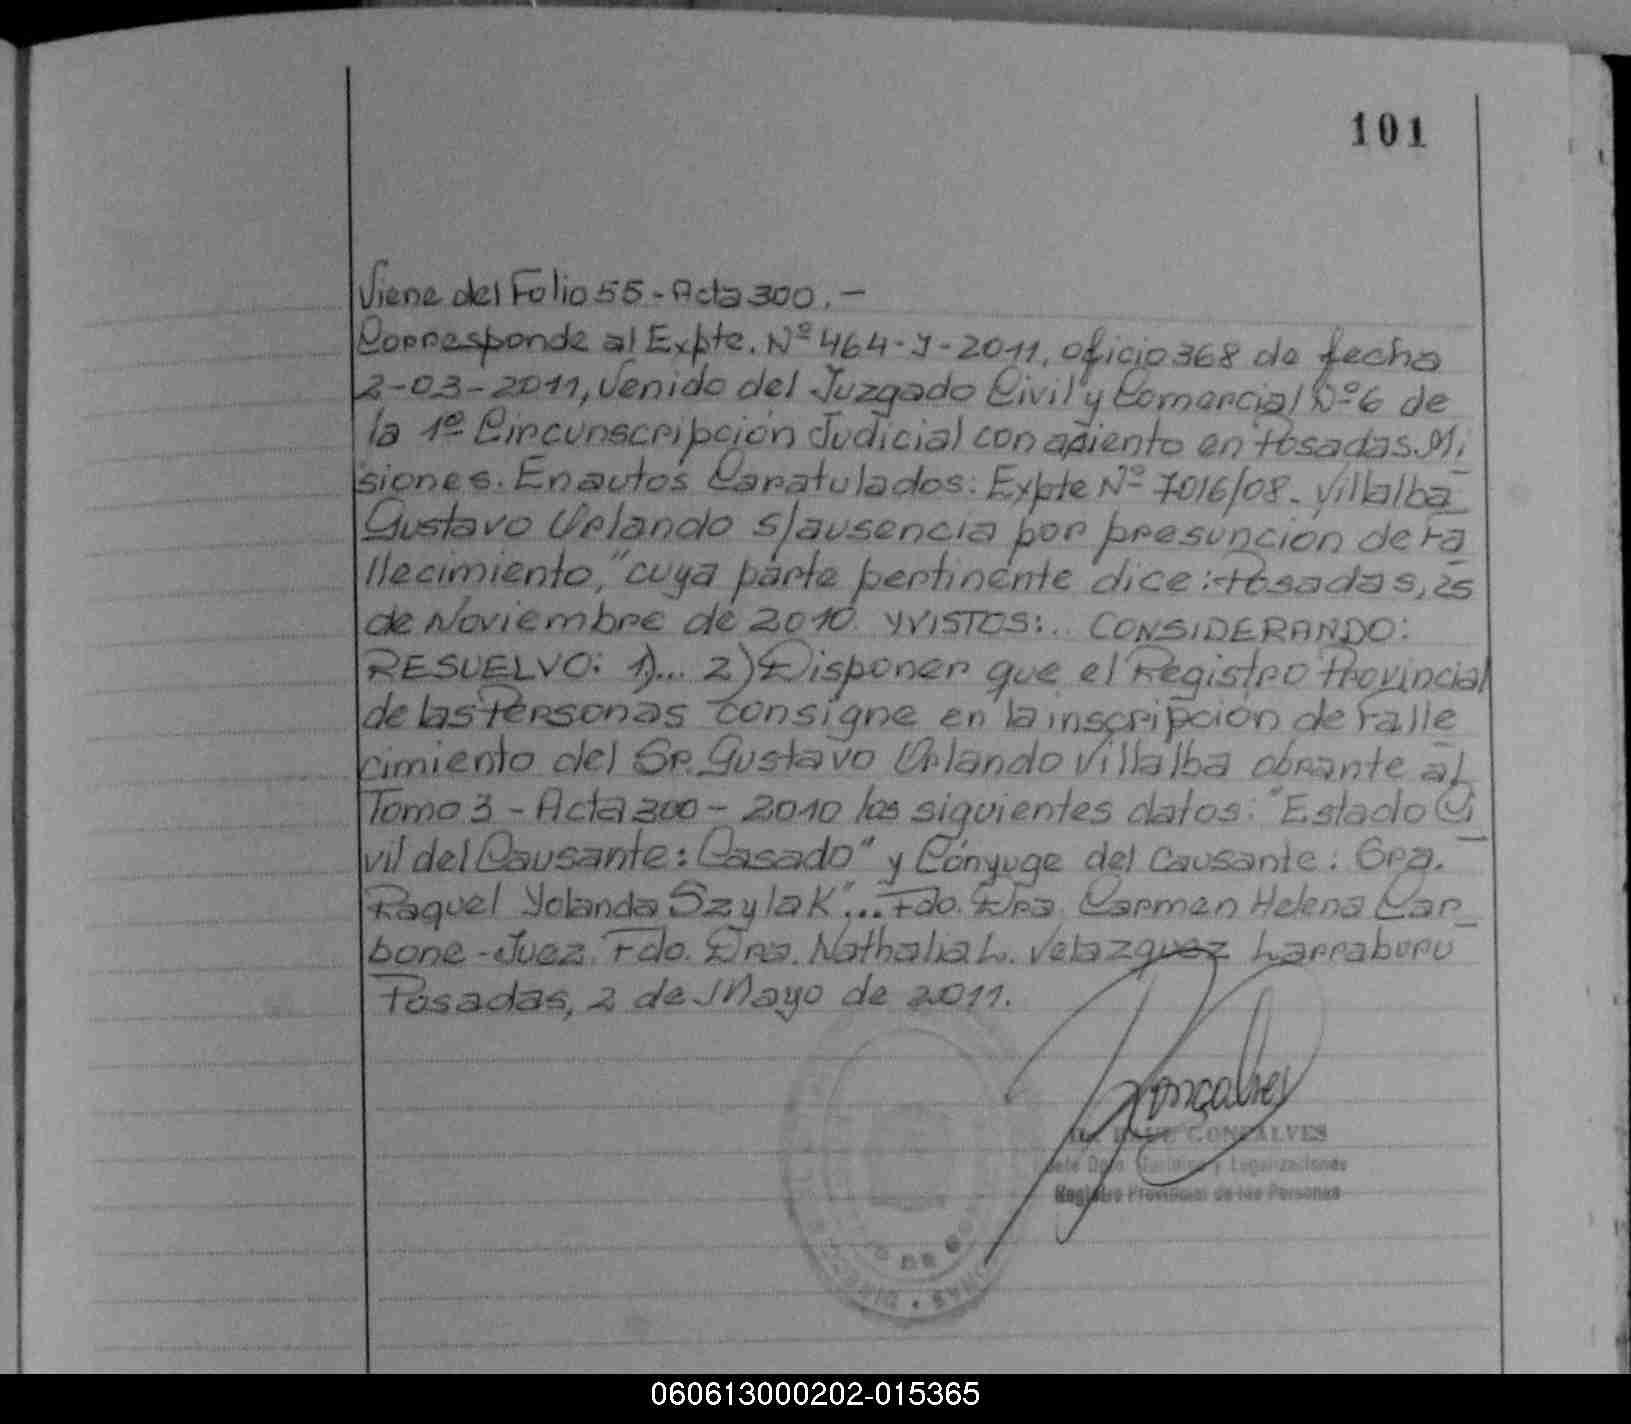 101
Viene del Folio 55 - Acta 300. -
Corresponde al Expte. Nº 464-J-2011, oficio 368 de fecha
2-03-2011, venido del Juzgado Civil y Comercial Nº 6 de
la 1º Circunscripción Judicial con asiento en Posadas. Mi
siones. En autos Caratulados: Expte Nº 7016/08 - Villalba
Gustavo Orlando s/ausencia por presunción de Fa
llecimiento," cuya parte pertinente dice: Posadas, 25
de Noviembre de 2010. Y VISTOS:.. CONSIDERANDO:
RESUELVO: 1)... 2) Disponer que el Registro Provincial
de las Personas consigne en la inscripción de Falle
cimiento del Sr. Gustavo Orlando Villalba obrante al
Tomo 3 - Acta 300 - 2010 los siguientes datos: "Estado Ci
vil del Causante: Casado" y Cónyuge del causante: Sra.
Raquel Yolanda Szylak"... Fdo. Dra. Carmen Helena Car
bone - Juez. Fdo. Dra. Nathalia L. Velazquez Larraburu
Posadas, 2 de Mayo de 2011.
Goncalves
GONCALVES
Legalizaciones
Registro Provincial de las Personas
060613000202-015365